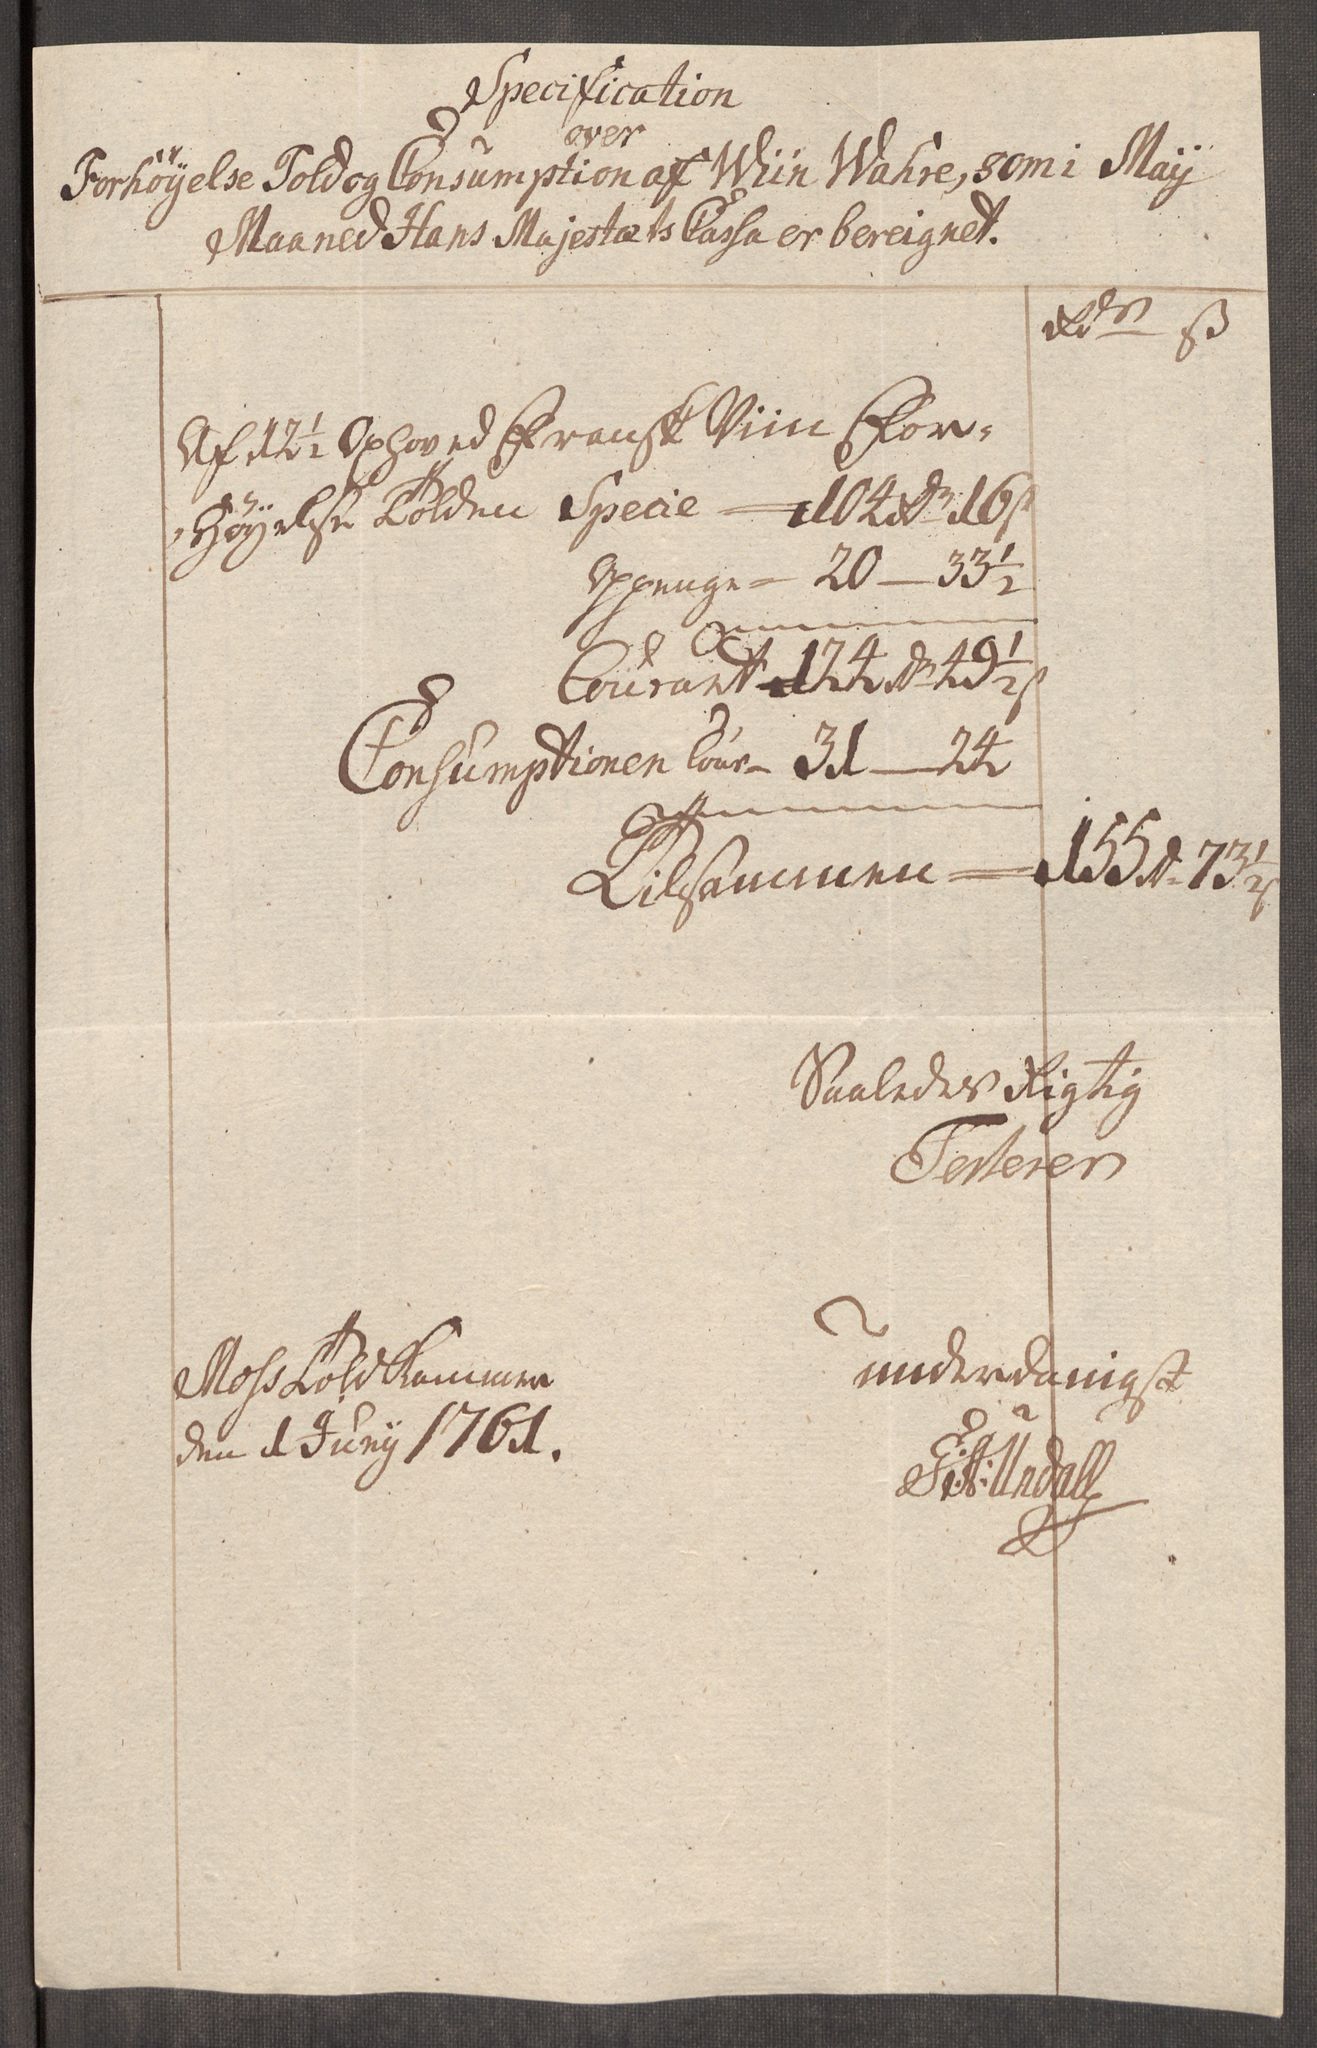 Specification
over
Forhöyelse Told og Consumption af Wiin Wahre, som i Maÿ
Maaned Hans Majestæts Cassa er bereignet.
Rdr ß
Af 12½ Oxhoved Fransk Viin For-
höyelse Tolden Specie 104 Rdr 16 ß
Opgenge 20 — 33½
Courant 124 Rdr 49½ ß
Consumptionen Cour 31 — 24
Tilsammen 155 Rdr 73½ ß
Saaledes Rigtig
Testerer
Moss Told Kammer
underdanigst
den 1 Junÿ 1761.
Undall